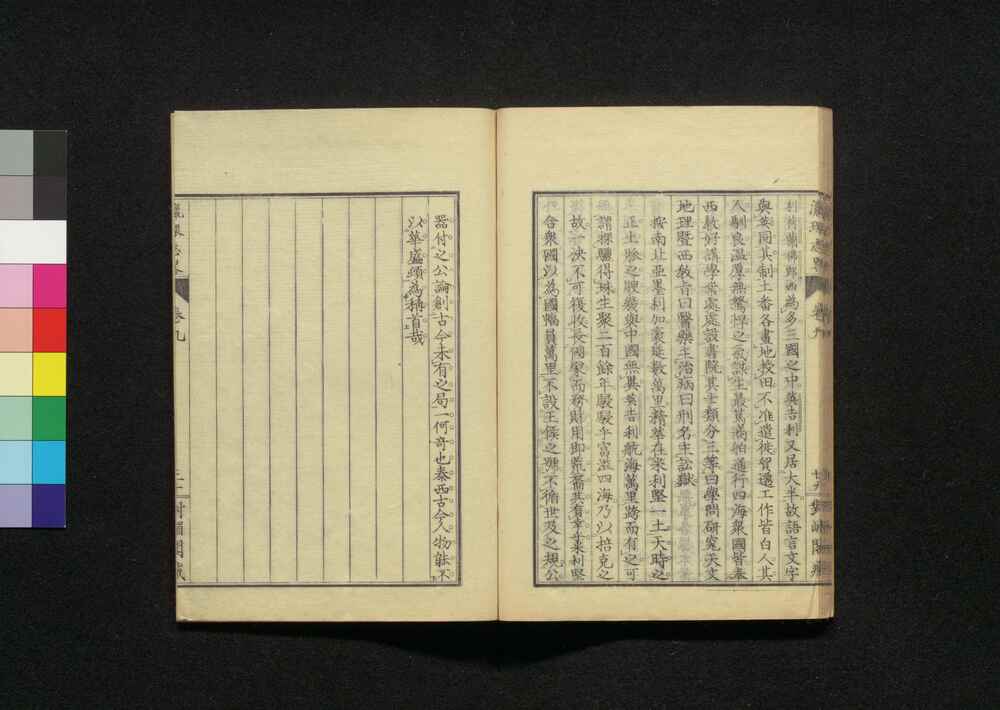 利荷蘭佛郎西為多三國之中英吉利又居大半故語言文字
與英同其制土番各畫地授田不准遷徙貿遷工作皆白人其
人馴良溫厚無鷙悍之氣謀生最篤商舶通行四海衆國皆奉
西教好講學業處處設書院其士類分三等曰學問研究天文
地理暨西教旨曰醫藥主治病曰刑名主訟獄
按南北亞墨利加袤延數萬里精華在米利堅一土天時之
正土脈之腴幾與中國無異英吉利航海萬里跨而有之可
謂探驪得珠生聚二百餘年駸駸乎富溢四海乃以掊克之
故一決不可復收長國家而務財用即荒裔其有幸乎米利堅
合衆國以為國幅員萬里不設王侯之號不循世及之規公
器付之公論創古今未有之局一何奇也泰西古今人物能不
以華盛頓為稱首哉